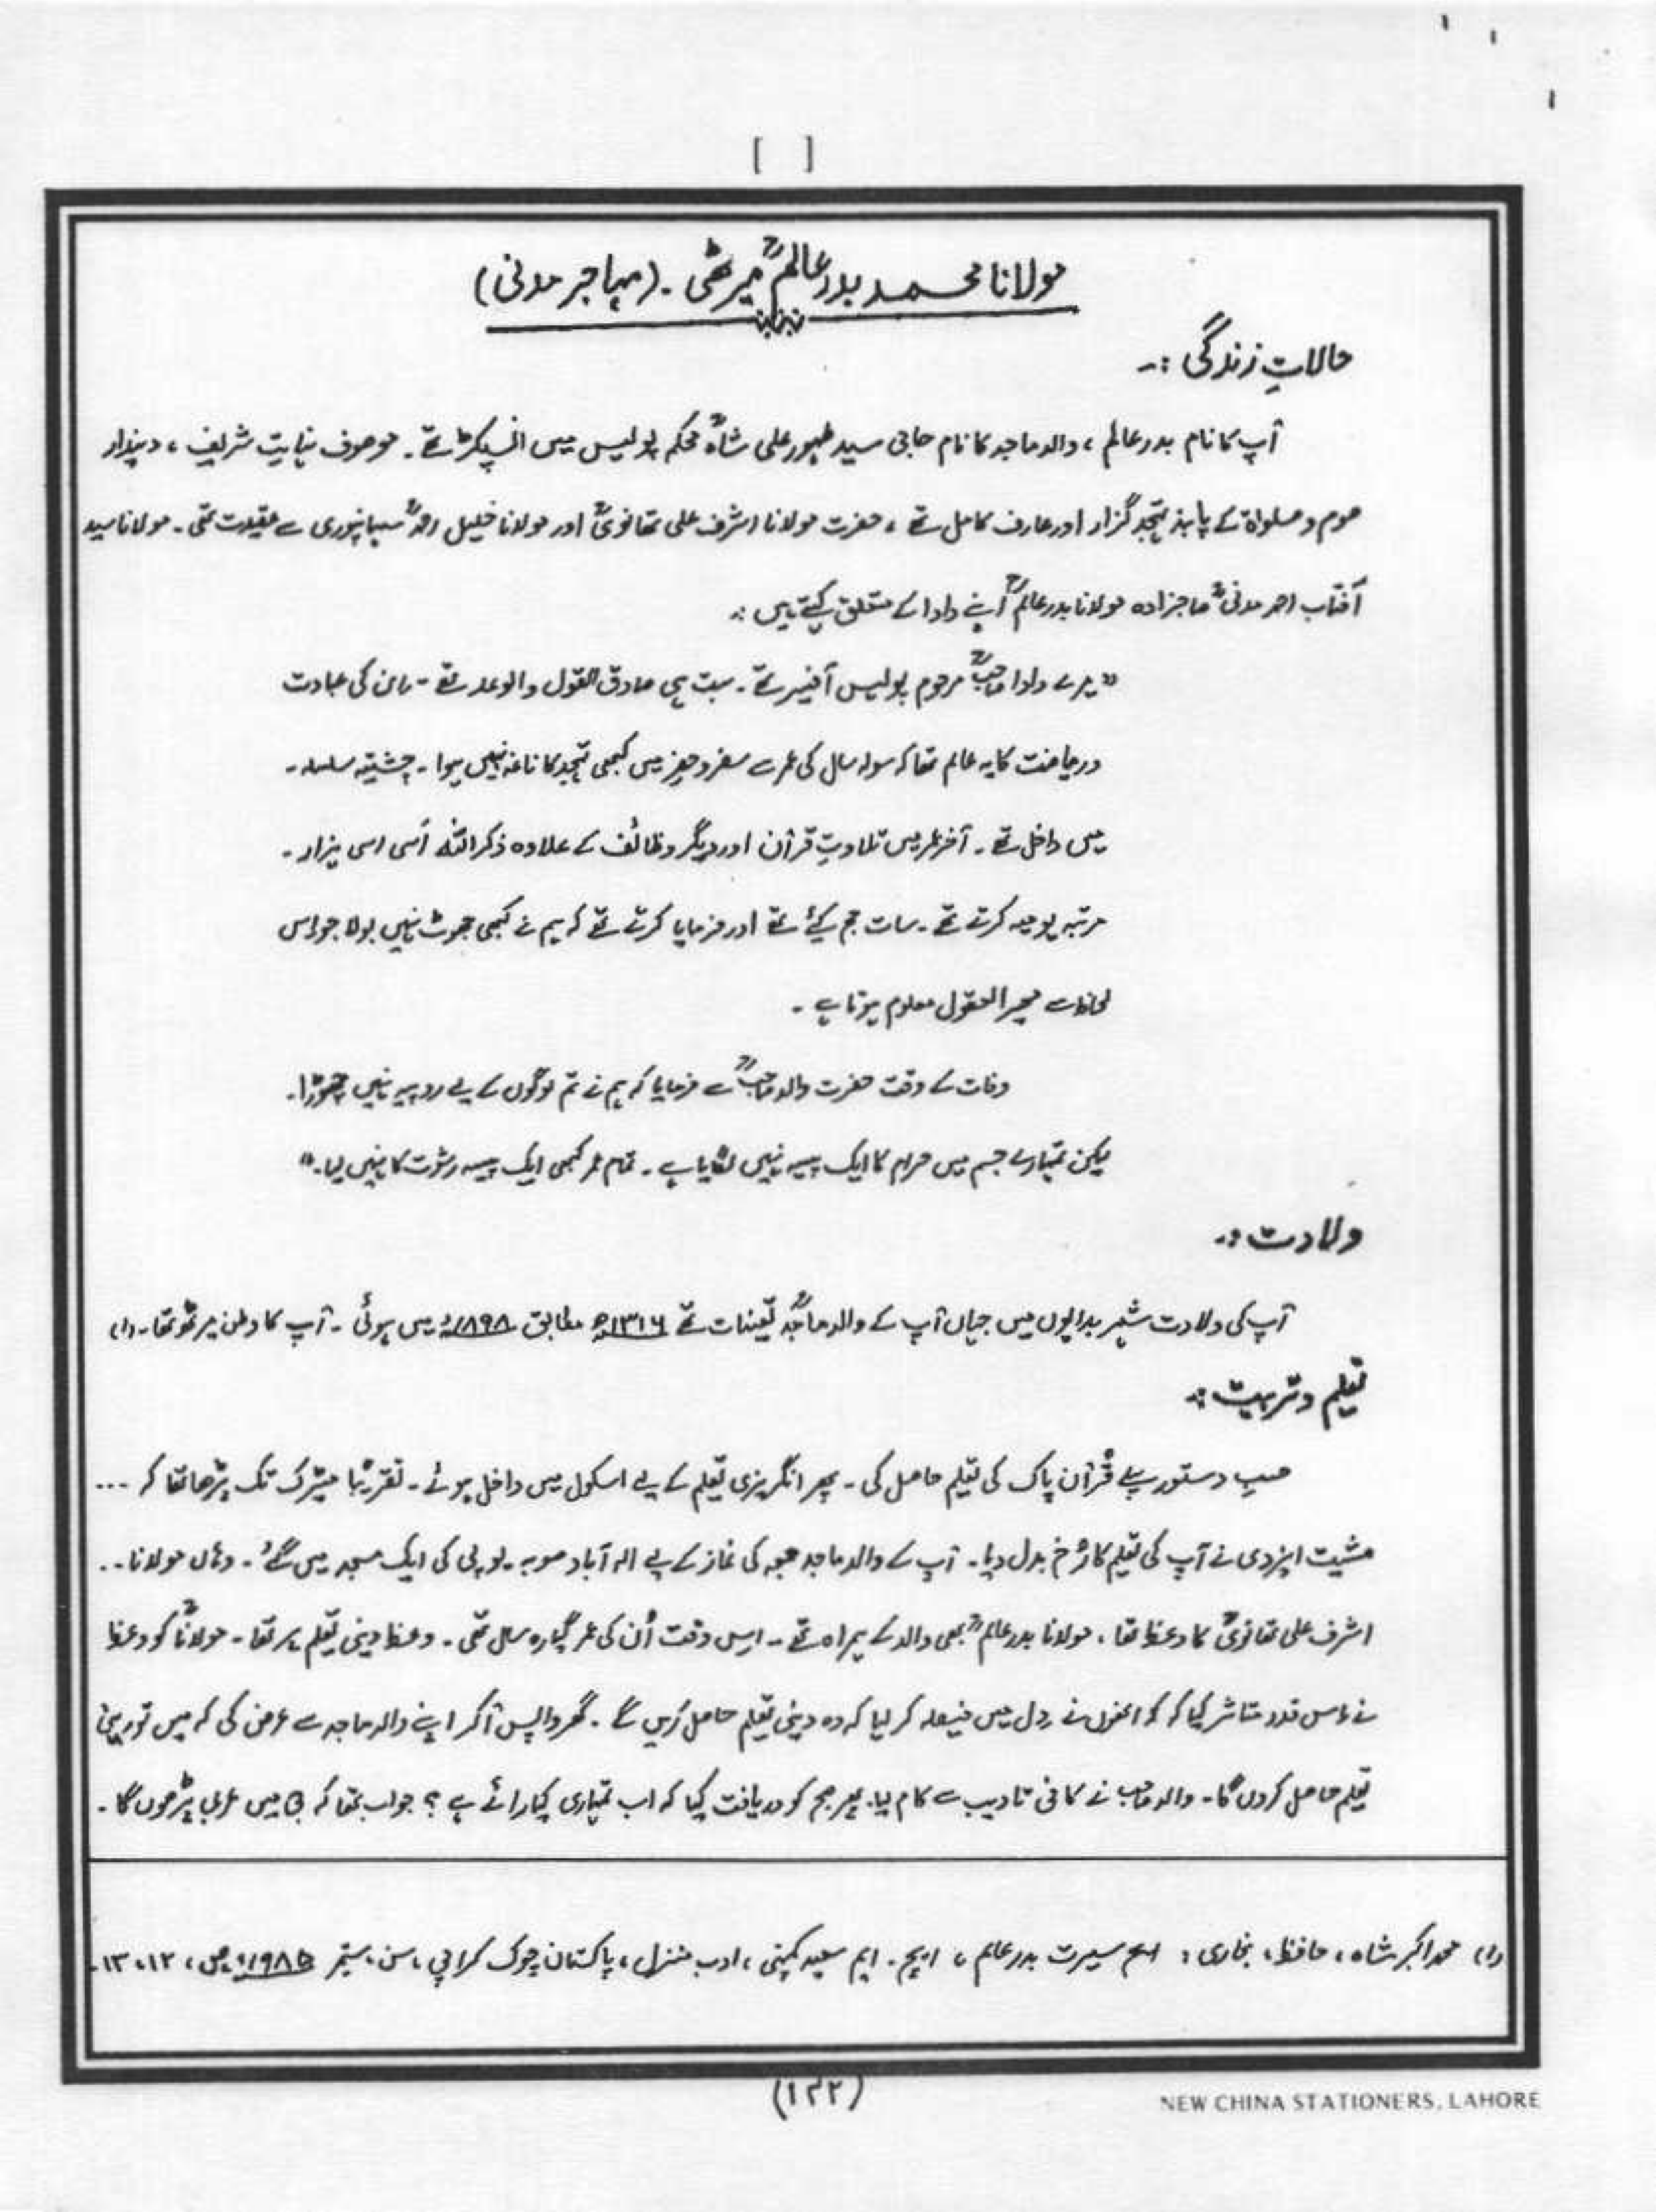 [ ]
مولانا محمد بدر عالمؒ میرٹھی ۔ (مہاجر مدنی)
حالاتِ زندگی :۔
آپ کا نام بدر عالم ، والد ماجد کا نام حاجی سید ظہور علی شاہؒ محکم پولیس میں انسپکٹر تھے ۔ موصوف نہایت شریف ، دیندار
صوم و صلواۃ کے پابند تہجد گزار اور عارف کامل تھے ، حضرت مولانا اشرف علی تھانویؒ اور مولانا خلیل احمدؒ سہانپوری سے عقیدت تھی ۔ مولانا سید
آفتاب احمد مدنیؒ صاحبزادہ مولانا بدر عالمؒ اپنے دادا کے متعلق کہتے ہیں :۔
"میرے دادا صاحبؒ مرحوم پولیس آفیسر تھے ۔ بہت ہی صادق القول والوعد تھے ۔ ان کی عبادت
و ریاضت کا یہ عالم تھا کہ سولہ سال کی عمر سے سفر و حضر میں کبھی تہجد کا ناغہ نہیں ہوا ۔ چشتیہ سلسلہ ۔
میں داخل تھے ۔ آخر عمر میں تلاوتِ قرآن اور دیگر وظائف کے علاوہ ذکر اللہ اَسی اسی ہزار ۔
مرتبہ یومیہ کرتے تھے ۔ سات حج کیٔے تھے اور فرمایا کرتے تھے کہ ہم نے کبھی جھوٹ نہیں بولا جو اس
لحاظ سے محیر العقول معلوم ہوتا ہے ۔
وفات کے وقت حضرت والد صاحبؒ سے فرمایا کہ ہم نے تم لوگوں کے لیے روپیہ نہیں چھوڑا ۔
لیکن تمہارے جسم میں حرام کا ایک پیسہ نہیں لگایا ہے ۔ تمام عمر کبھی ایک پیسہ رشوت کا نہیں لیا ۔"
ولادت :۔
آپ کی ولادت شہر بدایوں میں جہاں آپ کے والد ماجدؒ تعینات تھے ۱۳۱۶ھ مطابق ۱۸۹۸ء میں ہوئی ۔ آپ کا وطن میرٹھ تھا ۔ (۱)
تعلیم و تربیت :۔
حسبِ دستور پہلے قرآن پاک کی تعلیم حاصل کی ۔ پھر انگریزی تعلیم کے لیے اسکول میں داخل ہوئے ۔ تقریبًا میٹرک تک پڑھا تھا کہ ...
مشیت ایزدی نے آپ کی تعلیم کا رُخ بدل دیا ۔ آپ کے والد ماجد جمعہ کی نماز کے لیے الہ آباد صوبہ ۔ یوپی کی ایک مسجد میں گئے ۔ وہاں مولانا ۔۔
اشرف علی تھانویؒ کا وعظ تھا ، مولانا بدر عالمؒ بھی والد کے ہمراہ تھے ۔ اس وقت اُن کی عمر گیارہ سال تھی ۔ وعظ دینی تعلیم پر تھا ۔ مولاناؒ کو وعظ
نے اس قدر متاثر کیا کہ کہ انھوں نے دل میں فیصلہ کر لیا کہ وہ دینی تعلیم حاصل کریں گے ۔ گھر واپس آ کر اپنے والد ماجد سے عرض کی کہ میں تو دینی
تعلیم حاصل کروں گا ۔ والد صاحب نے کافی تادیب سے کام لیا ۔ پھر صبح کو دریافت کیا کہ اب تمہاری کیا رائے ہے ؟ جواب تھا کہ میں عربی پڑھوں گا ۔
(۱) محمد اکبر شاہ ، حافظ ، بخاری : سیرت بدر عالم ، ایچ ۔ ایم سعید کمپنی ، ادب منزل ، پاکستان چوک کراچی ، سن ، ستمبر ۱۹۸۵ء ص ، ۱۲ ، ۱۳ ۔
(۱۳۲)
NEW CHINA STATIONERS, LAHORE